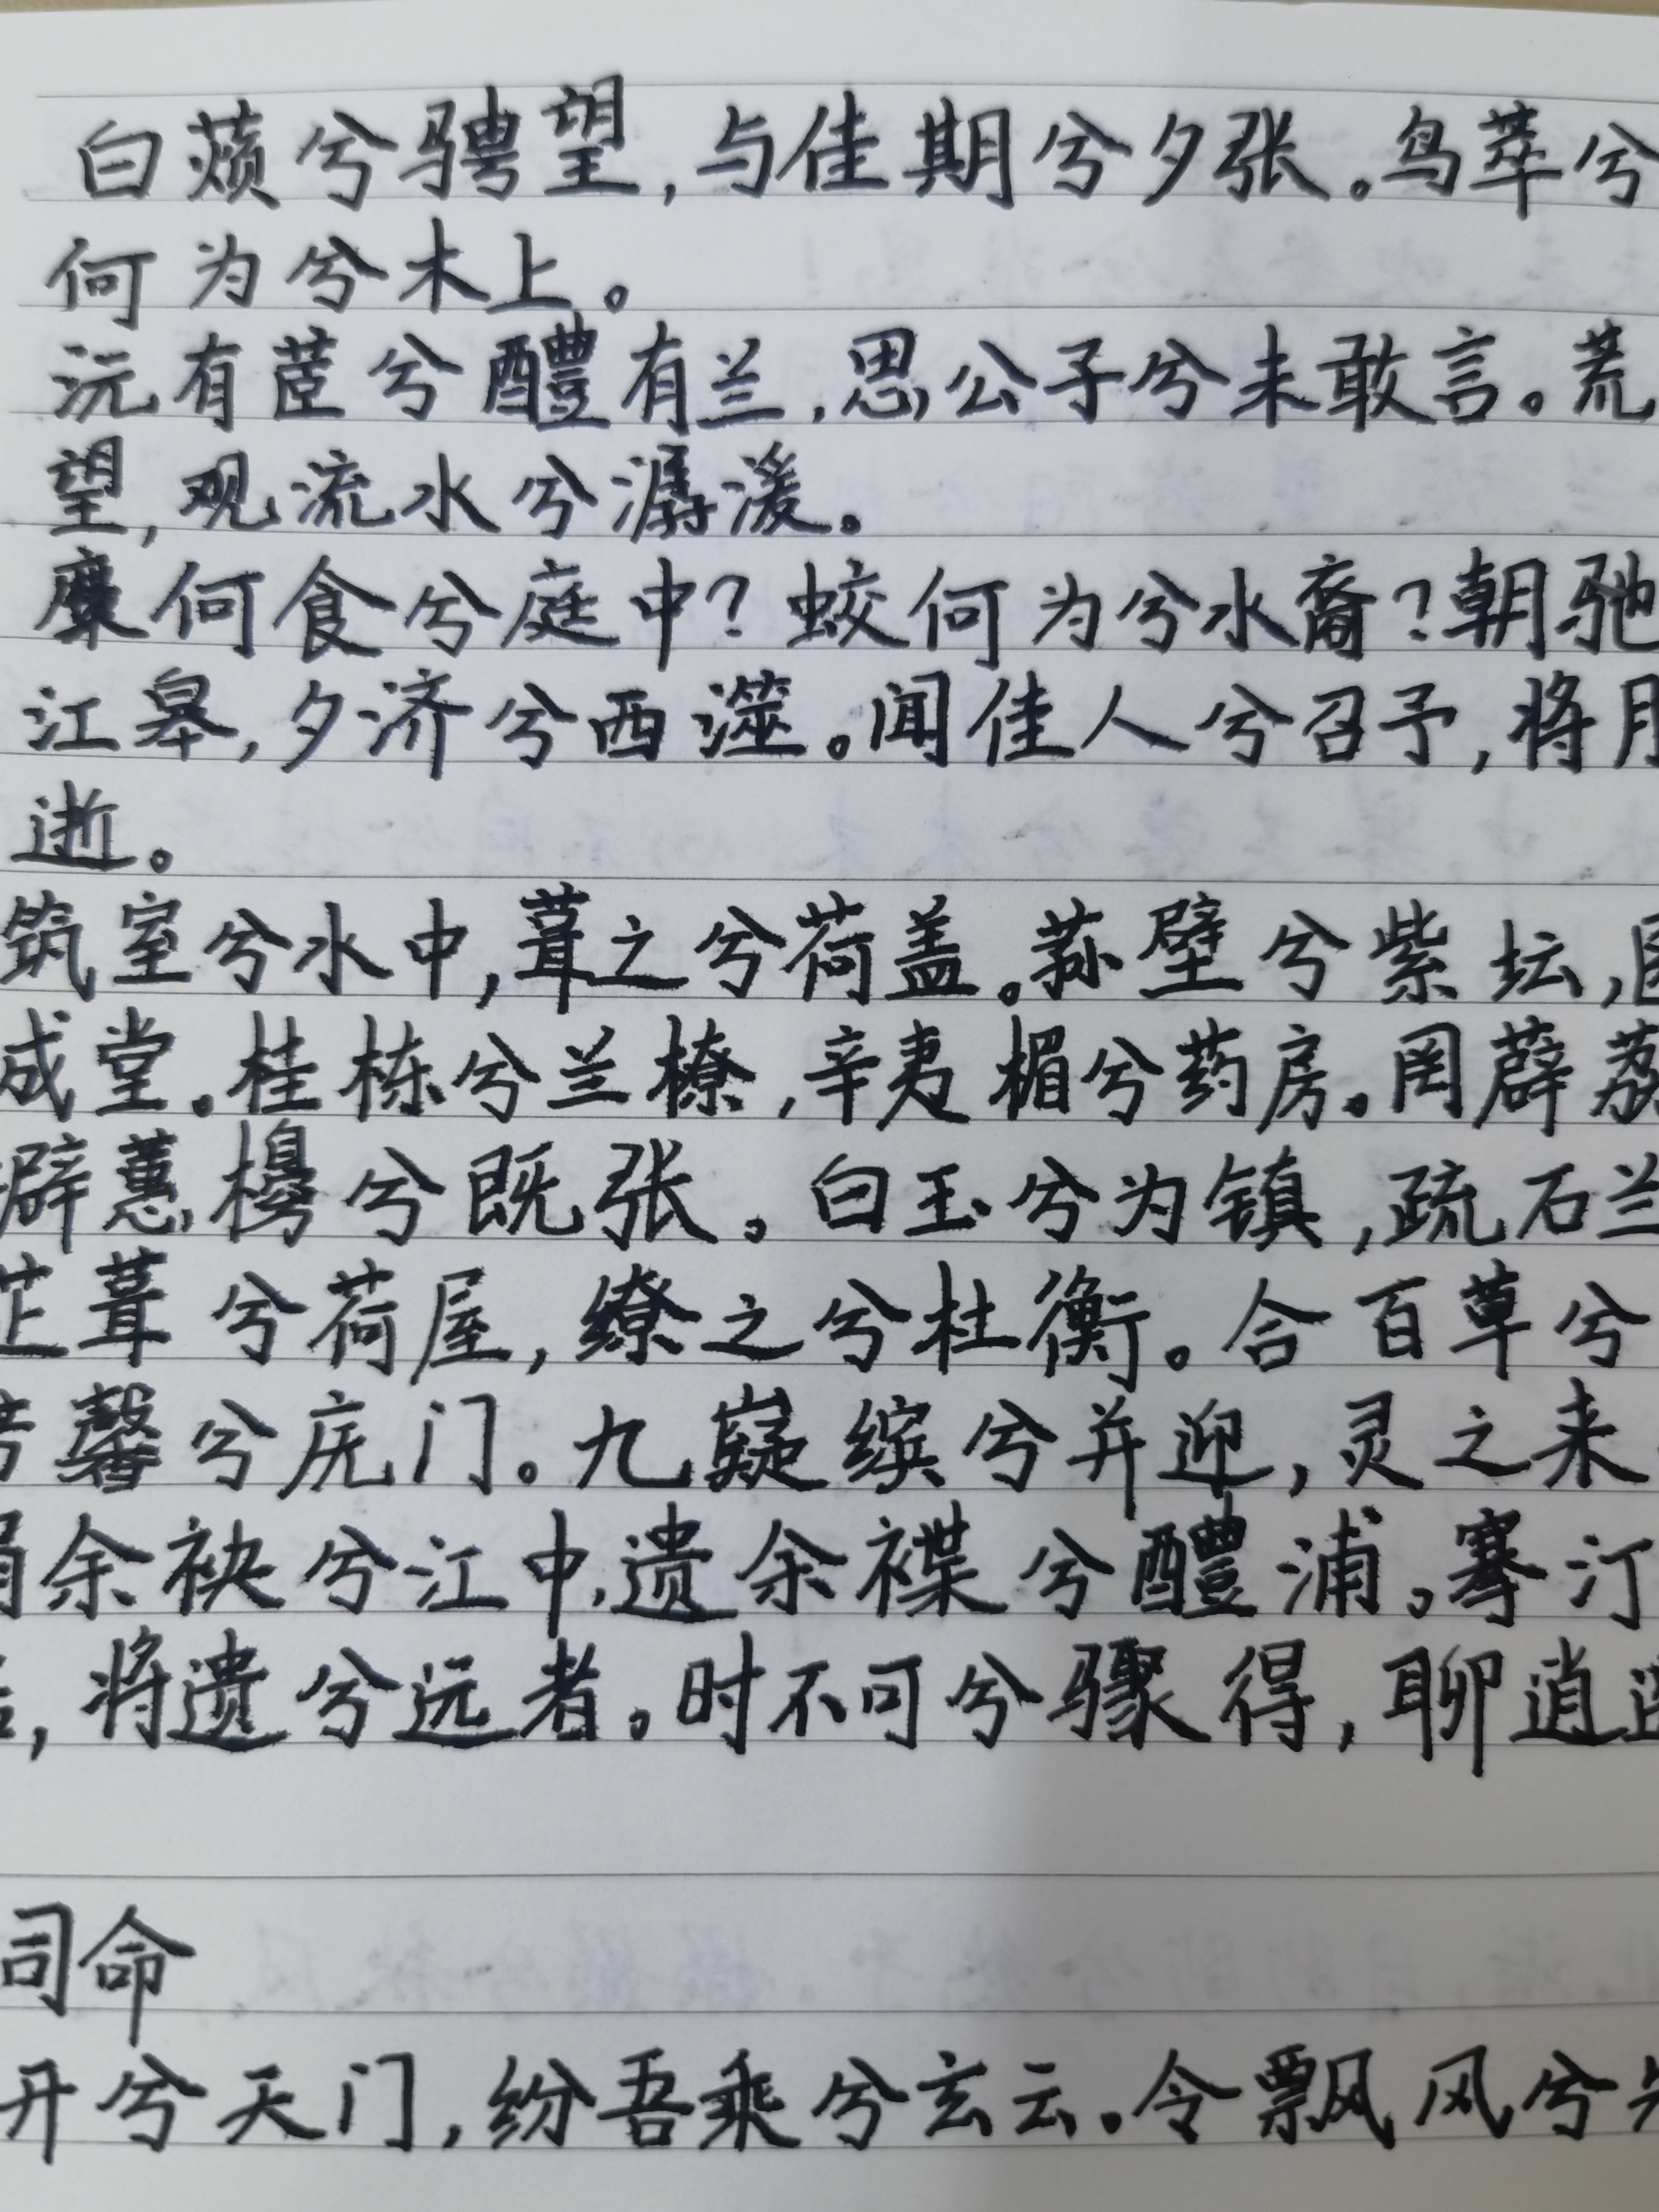 白薠兮骋望,与佳期兮夕张。鸟萃兮
何为兮木上。
沅有茝兮醴有兰,思公子兮未敢言。荒
望,观流水兮潺湲。
麋何食兮庭中?蛟何为兮水裔?朝驰
江皋,夕济兮西澨。闻佳人兮召予,将
逝。
筑室兮水中,葺之兮荷盖。荪壁兮紫坛,
成堂。桂栋兮兰橑,辛夷楣兮药房。罔薜荔
擗蕙櫋兮既张。白玉兮为镇,疏石兰
芷葺兮荷屋,缭之兮杜衡。合百草兮
芳馨兮庑门。九嶷缤兮并迎,灵之来
捐余袂兮江中,遗余褋兮醴浦。搴汀
,将遗兮远者。时不可兮骤得,聊逍遥
司命
开兮天门,纷吾乘兮玄云。令飘风兮先